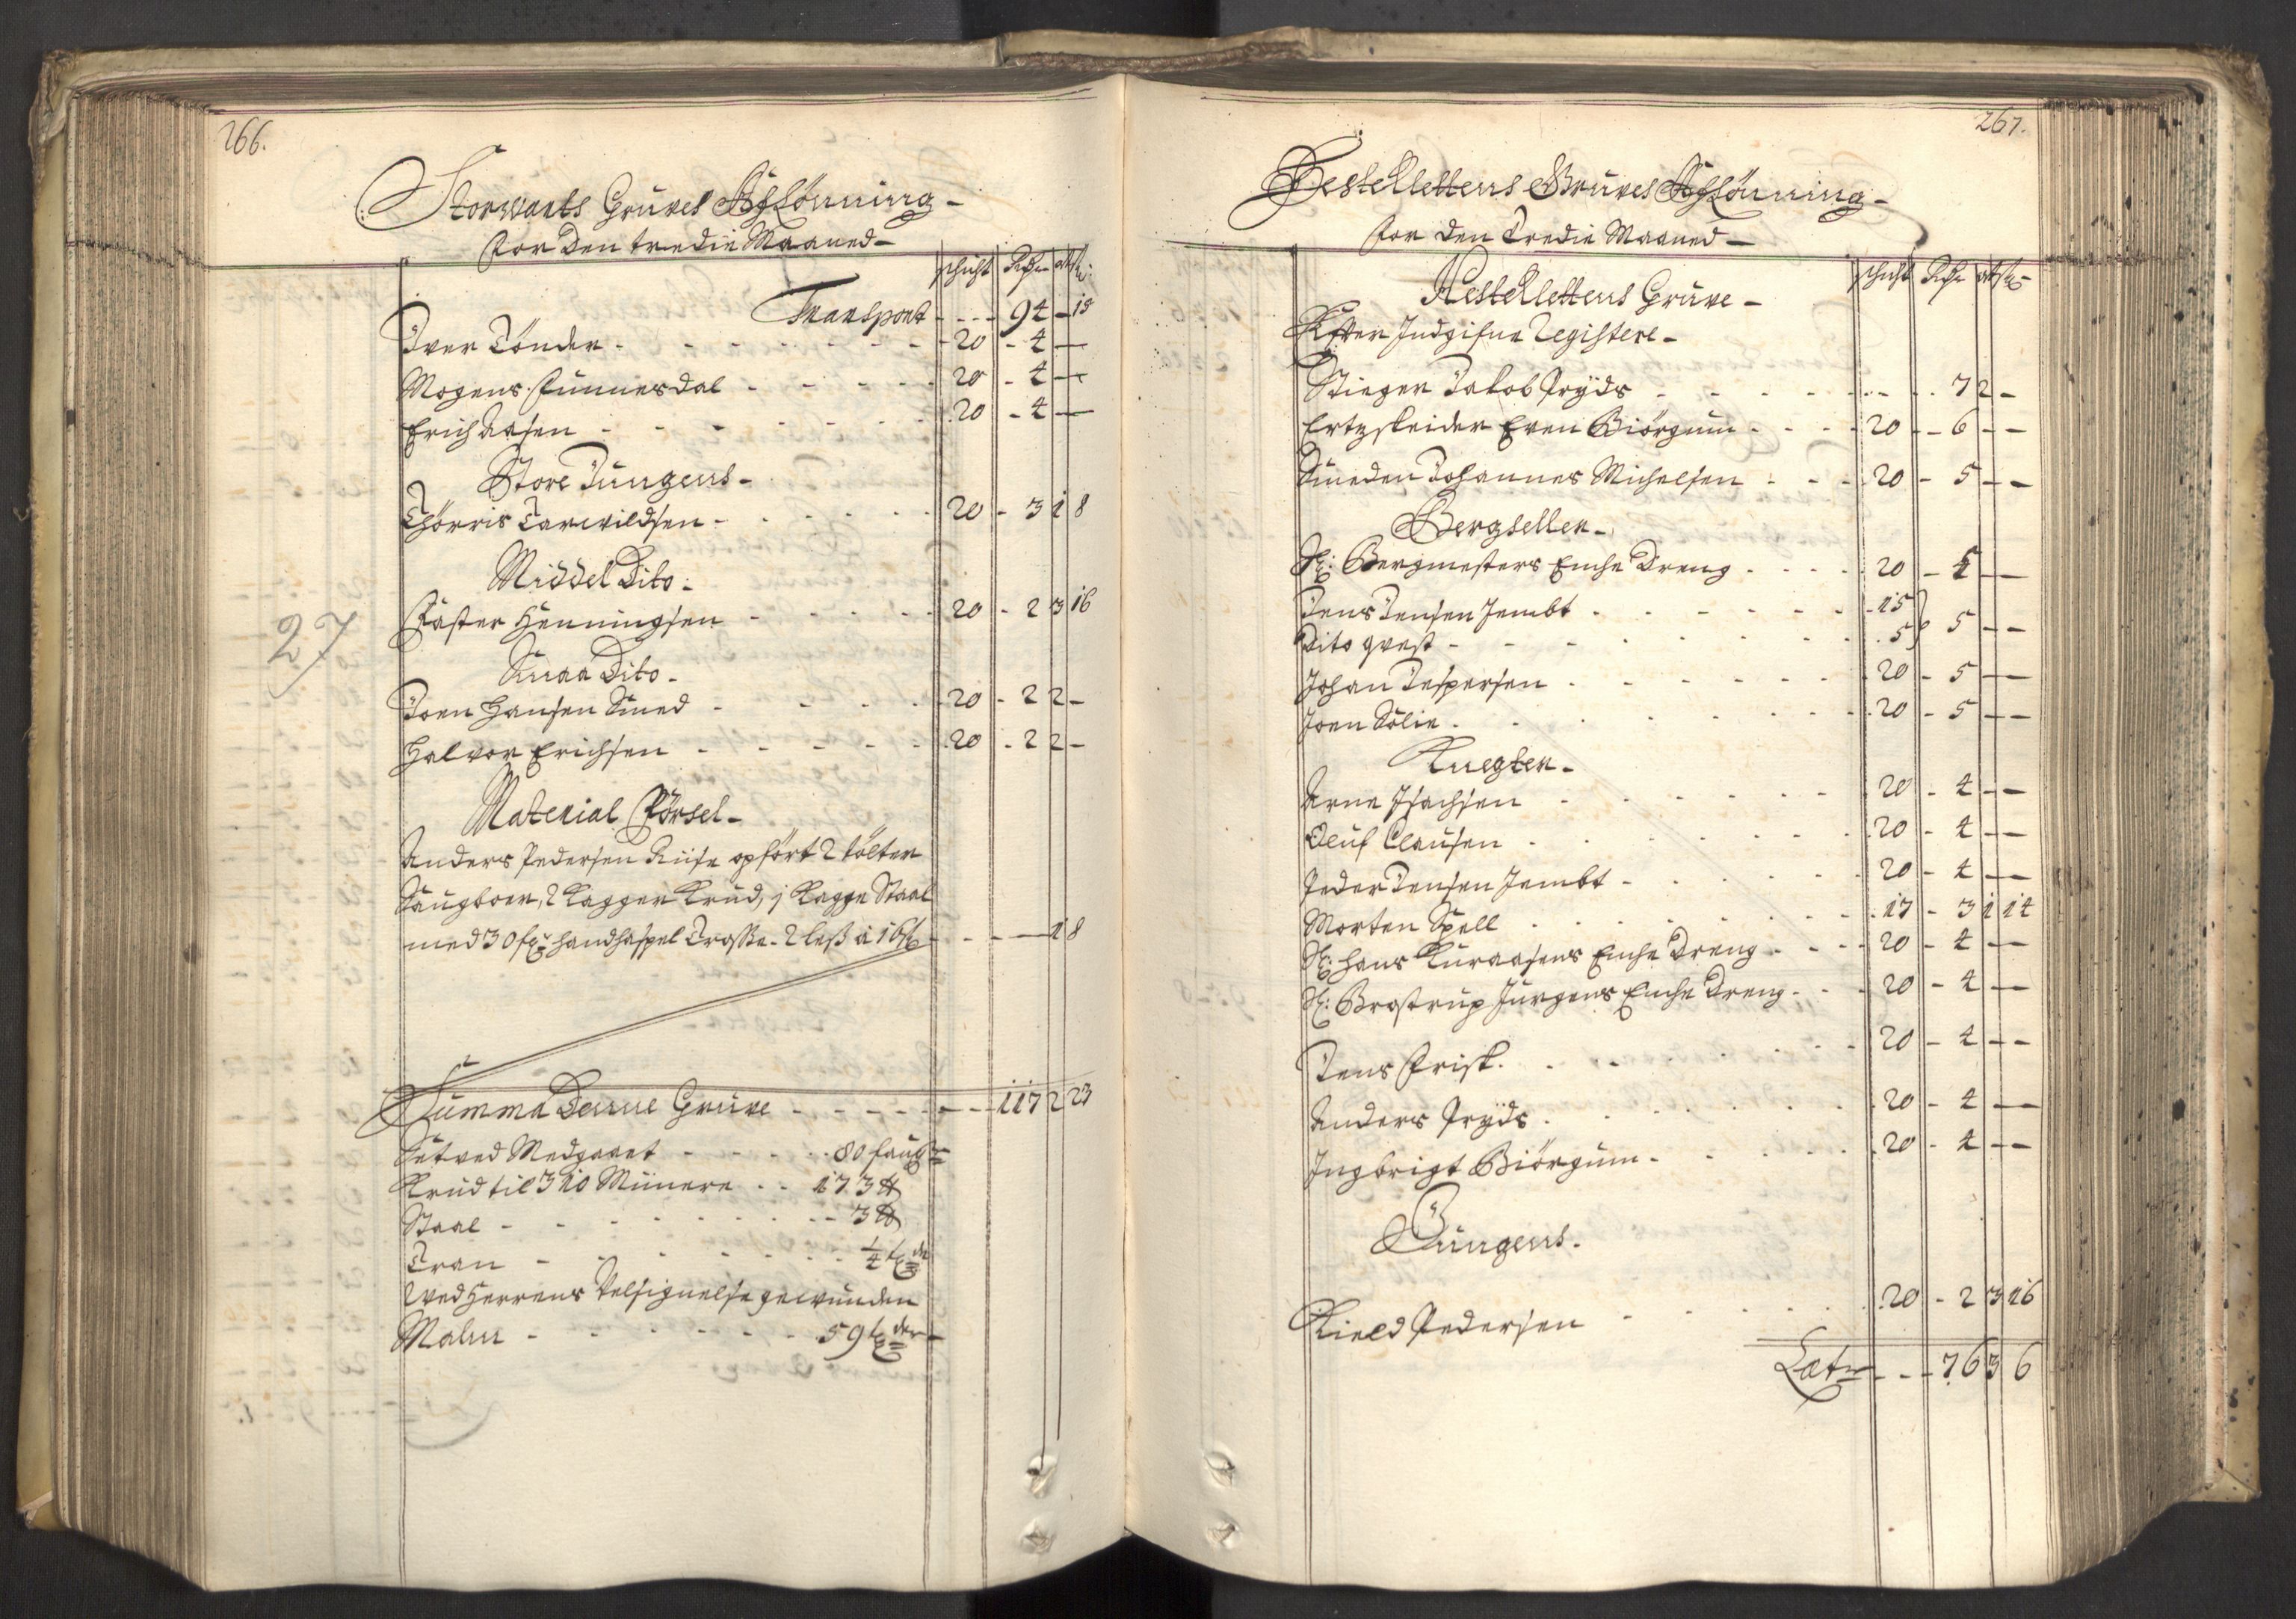 266.
Storwarts Gruves Afslönning -
for den tredie Maaned -
schicht Rdr ort ſz:
Transport - - - 94 - 15
Iver Tönder - - - 20 - 4 -
Mogens Funnesdal - - - 20 - 4 -
Erich Aasen - - - 20 - 4 -
Store Jungens -
Thörris Tarvildsen - - - 20 - 3 1 8
Middel Dito -
Faster Henningsen - - - 20 - 2 3 16
Smaa Dito -
Joen Hansen Smed - - - 20 - 2 2 -
Halvor Erichsen - - - 20 - 2 2 -
Material Försel -
Anders Pedersen Riise opfört 2 tölter
Saugboer, 2 Kagger Krud, j Kagge Staal
med 30 handhaspel Trosse - 2 less à 16 - - - 1 8
27
Summa Denne Gruve - - - 117 2 23
Setved Medgaaet - - - 80 faug
Krud til 310 Miinere - - 173 ℔
Staal - - - 3 ℔
Tran - - - 1/4
Ved Herrens Velsignelse gewunden
Malm - - - 59 tder
267.
Hestklettens Gruves Afslönning -
for den Tredie Maaned -
schicht Rdr ort ſz
Hestklettens Gruve -
Efter Indgifne Registere -
Stieger Jakob Pryds - - - 7 2 -
Ertzskeider Even Biörgum - - - 20 - 6 - -
Smeden Johannes Michelsen - - - 20 - 5 - -
Bergseller -
Sl: Bergmesters Enche Dreng - - - 20 - 4 - -
Jens Jensen Jembt - - - 15
Dito qvest - - - 5 } 5 - -
Johan Jespersen - - - 20 - 5 - -
Joen Solie - - - 20 - 5 - -
Knegter -
Arne Isachsen - - - 20 - 4 - -
Oluf Clausen - - - 20 - 4 - -
Peder Jensen Jembt - - - 20 - 4 - -
Morten Spell - - - 17 - 3 1 14
Sl: Hans Kuraasens Enche Dreng - - - 20 - 4 - -
Sl: Brostrup Jürgens Enche Dreng - - - 20 - 4 - -
Jens Frisk - - - 20 - 4 - -
Anders Pryds - - - 20 - 4 - -
Ingbrigt Biörgum - - - 20 - 4 - -
Jungens -
Kield Pedersen - - - 20 - 2 3 16
Lat - - - 76 3 6